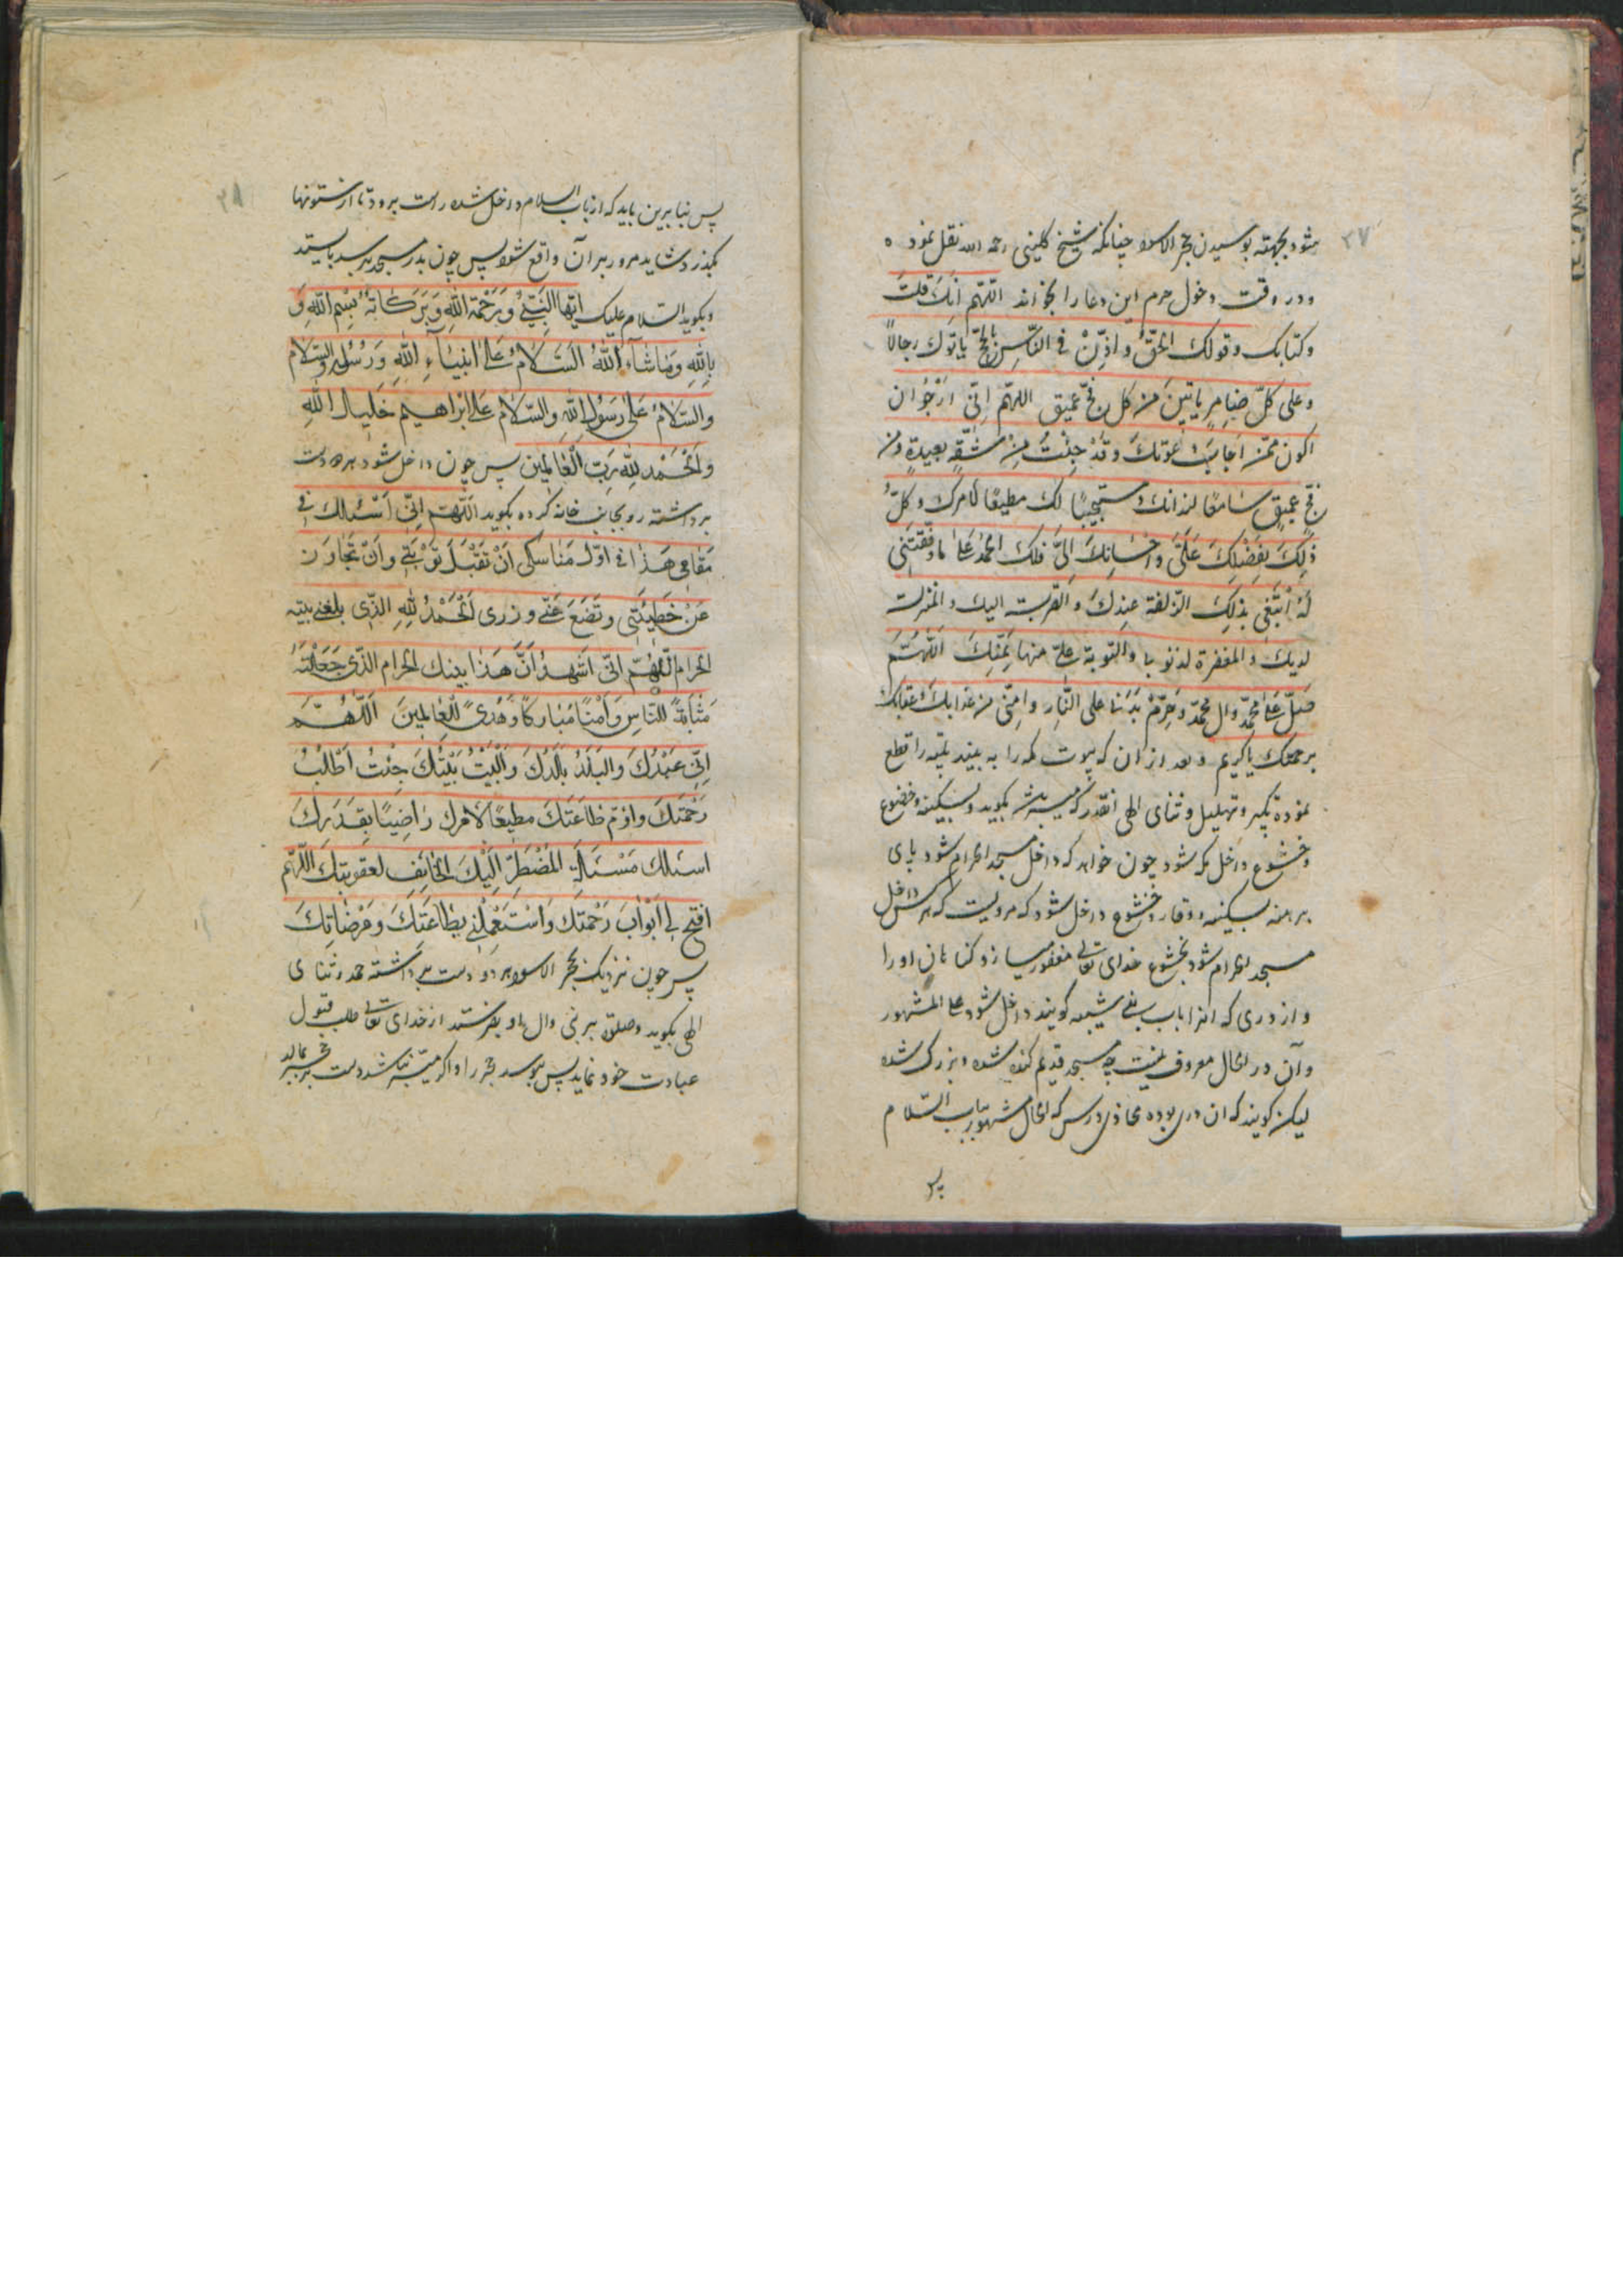 ۳۷
شود بجهته بوسیدن حجر الاسود چنانکه شیخ کلینی رحمه الله نقل نموده
و در وقت دخول حرم این دعا را بخواند اللّهم انّک قلتَ
و کتابک و قولک الحقّ و اذّنْ فی النّاس بالحجّ یاتوک رجالاً
و علی کلّ ضامرٍ یاتین من کل فجّ عمیق اللهمّ انّی ارْجُو ان
اکون ممّن اجابَ دعوتک و قَدْ جئتُ مِنْ شقّةٍ بعیدةٍ و من
فجّ عمیقٍ سامعًا لندائک و مستجیبًا لک مطیعًا لامرک و کلّ
ذلِکَ بِفَضْلِکَ عَلَیَّ و احْسانِکَ اِلیَّ فلک الحمدُ علی ما وفّقتَنی
لَهُ اَبْتَغی بذلِکَ الزّلفة عندکَ و القربة الیک و المنزلت
لدیک و المغفرة لذنوبی و التّوبة علیّ منها بِمَنّکَ اَللّهُمَّ
صلّ علی محمّد و آل محمّد و حَرِّمْ بدَنی علی النّار و امنّی من عذابک و عقابک
برحمتک یا کریم و بعد از ان که بیوت مکه را به بیند تلبیه را قطع
نموده تکبیر و تهلیل و ثنای الهی انقدر که میسر باشد بگوید و بسکینه و خضوع
و خشوع داخل مکه شود چون خواهد که داخل مسجد الحرام شود پای
برهنه بسکینه و وقار و خشوع داخل شود که مرویست که هر کس داخل
مسجد الحرام شود بخشوع خدای تعالی مغفور میسازد کناهان او را
و از دری که انرا باب بنی شیبه کویند داخل شود علی المشهور
و آن در الحال معروف نیست چه مسجد قدیم کنده شده و بزرک شده
لیکن کویند که ان دری بوده محاذی دریس که الحال مشهور بباب السّلام
پس
۳۸
پس بنابرین باید که از باب السلام داخل شده راست برود تا از ستونها
بکذرد شاید مرور بر آن واقع شود پس چون بدر مسجد برسد بایستد
و بکوید السّلام علیک ایّها النّبیُّ وَ رَحْمَة اللهِ وَ بَرَکاتُهُ بِسْمِ اللهِ وَ
بِاللهِ وَ ماشآءَ اللهُ السَّلامُ عَلی انبیآءِ اللهِ وَ رُسُلِهِ و السّلام
و السّلامُ عَلی رَسُولِ اللهِ و السّلامُ عَلی ابْراهیمَ خَلیلِ اللهِ
و الحَمْد للهِ رَبّ الْعالمین پس چون داخل شود هر دو دست
برداشته رو بجانب خانه کرده بکوید اللّهمّ انّی اَسْئلک فی
مَقامی هَذا فی اوّل مَناسکی اَنْ تَقْبَلَ تَوْبَتی و اَنْ تَجاوَزَ
عَنْ خَطیئَتی و تَضَعَ عَنّی وزری اَلْحَمْدُ للهِ الّذی بلغنی بیته
الحرام اللّهُمّ انّی اَشهدُ اَنَّ هَذا بیتک الحرام الّذی جَعَلْتَهُ
مَثابَةً للنّاسِ وَ اَمْنًا مُبارکًا وَ هُدیً للعالمینَ اَللّهُمَّ
اِنّی عَبْدُکَ و البَلَدُ بَلَدُکَ و البَیْتُ بَیْتُکَ جئتُ اَطْلُبُ
رَحْمَتَکَ و اؤمّ طاعَتَکَ مطیعًا لامْرِکَ راضیًا بِقَدَرِکَ
اسئلک مَسْئلَةَ المُضْطَرِّ الَیْکَ الخائفِ لعقوبتِکَ اللّهمّ
افتح لی ابْوابَ رَحْمَتِکَ وَ اسْتَعْمِلْنی بطاعَتِکَ و مَرْضاتِکَ
پس چون نزدیک حجر الاسود هر دو دست برداشته حمد و ثنای
الهی بکوید و صلوة بر نبی و آل او بفرستد از خدای تعالی طلب قبول
عبادت خود نماید پس ببوسد حجر را و اکر میسّر نباشد دست بر حجر بمالد